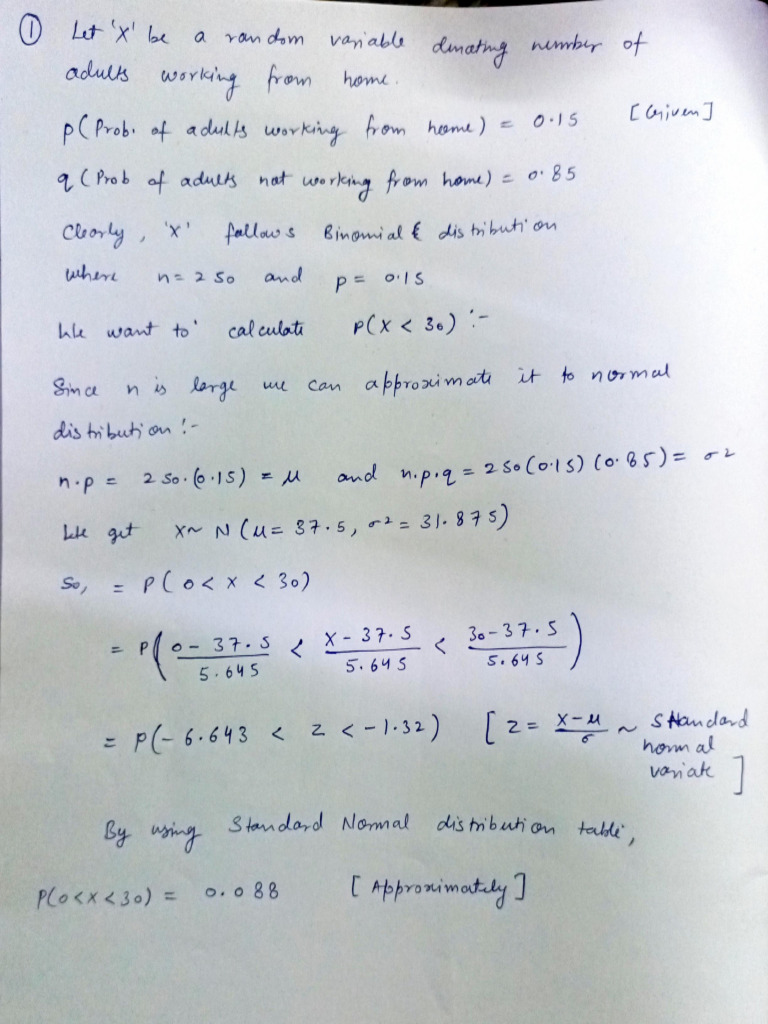 ① Let 'X' be a random variable denoting number of
adults working from home.
p (Prob. of adults working from home) = 0.15 [Given]
q (Prob of adults not working from home) = 0.85
Clearly, 'X' follows Binomial distribution
where n = 250 and p = 0.15
We want to calculate P(X < 30) :-
Since n is large we can approximate it to normal
distribution :-
n.p = 250.(0.15) = μ and n.p.q = 250(0.15)(0.85) = σ2
We get X~ N (μ = 37.5, σ2 = 31.875)
So, = P(0 < X < 30)
= P( (0 - 37.5)/5.645 < (X - 37.5)/5.645 < (30 - 37.5)/5.645 )
= P(-6.643 < Z < -1.32) [Z = (X-μ)/σ ~ Standard
normal
variate]
By using Standard Normal distribution table,
P(0<X<30) = 0.088 [Approximately]